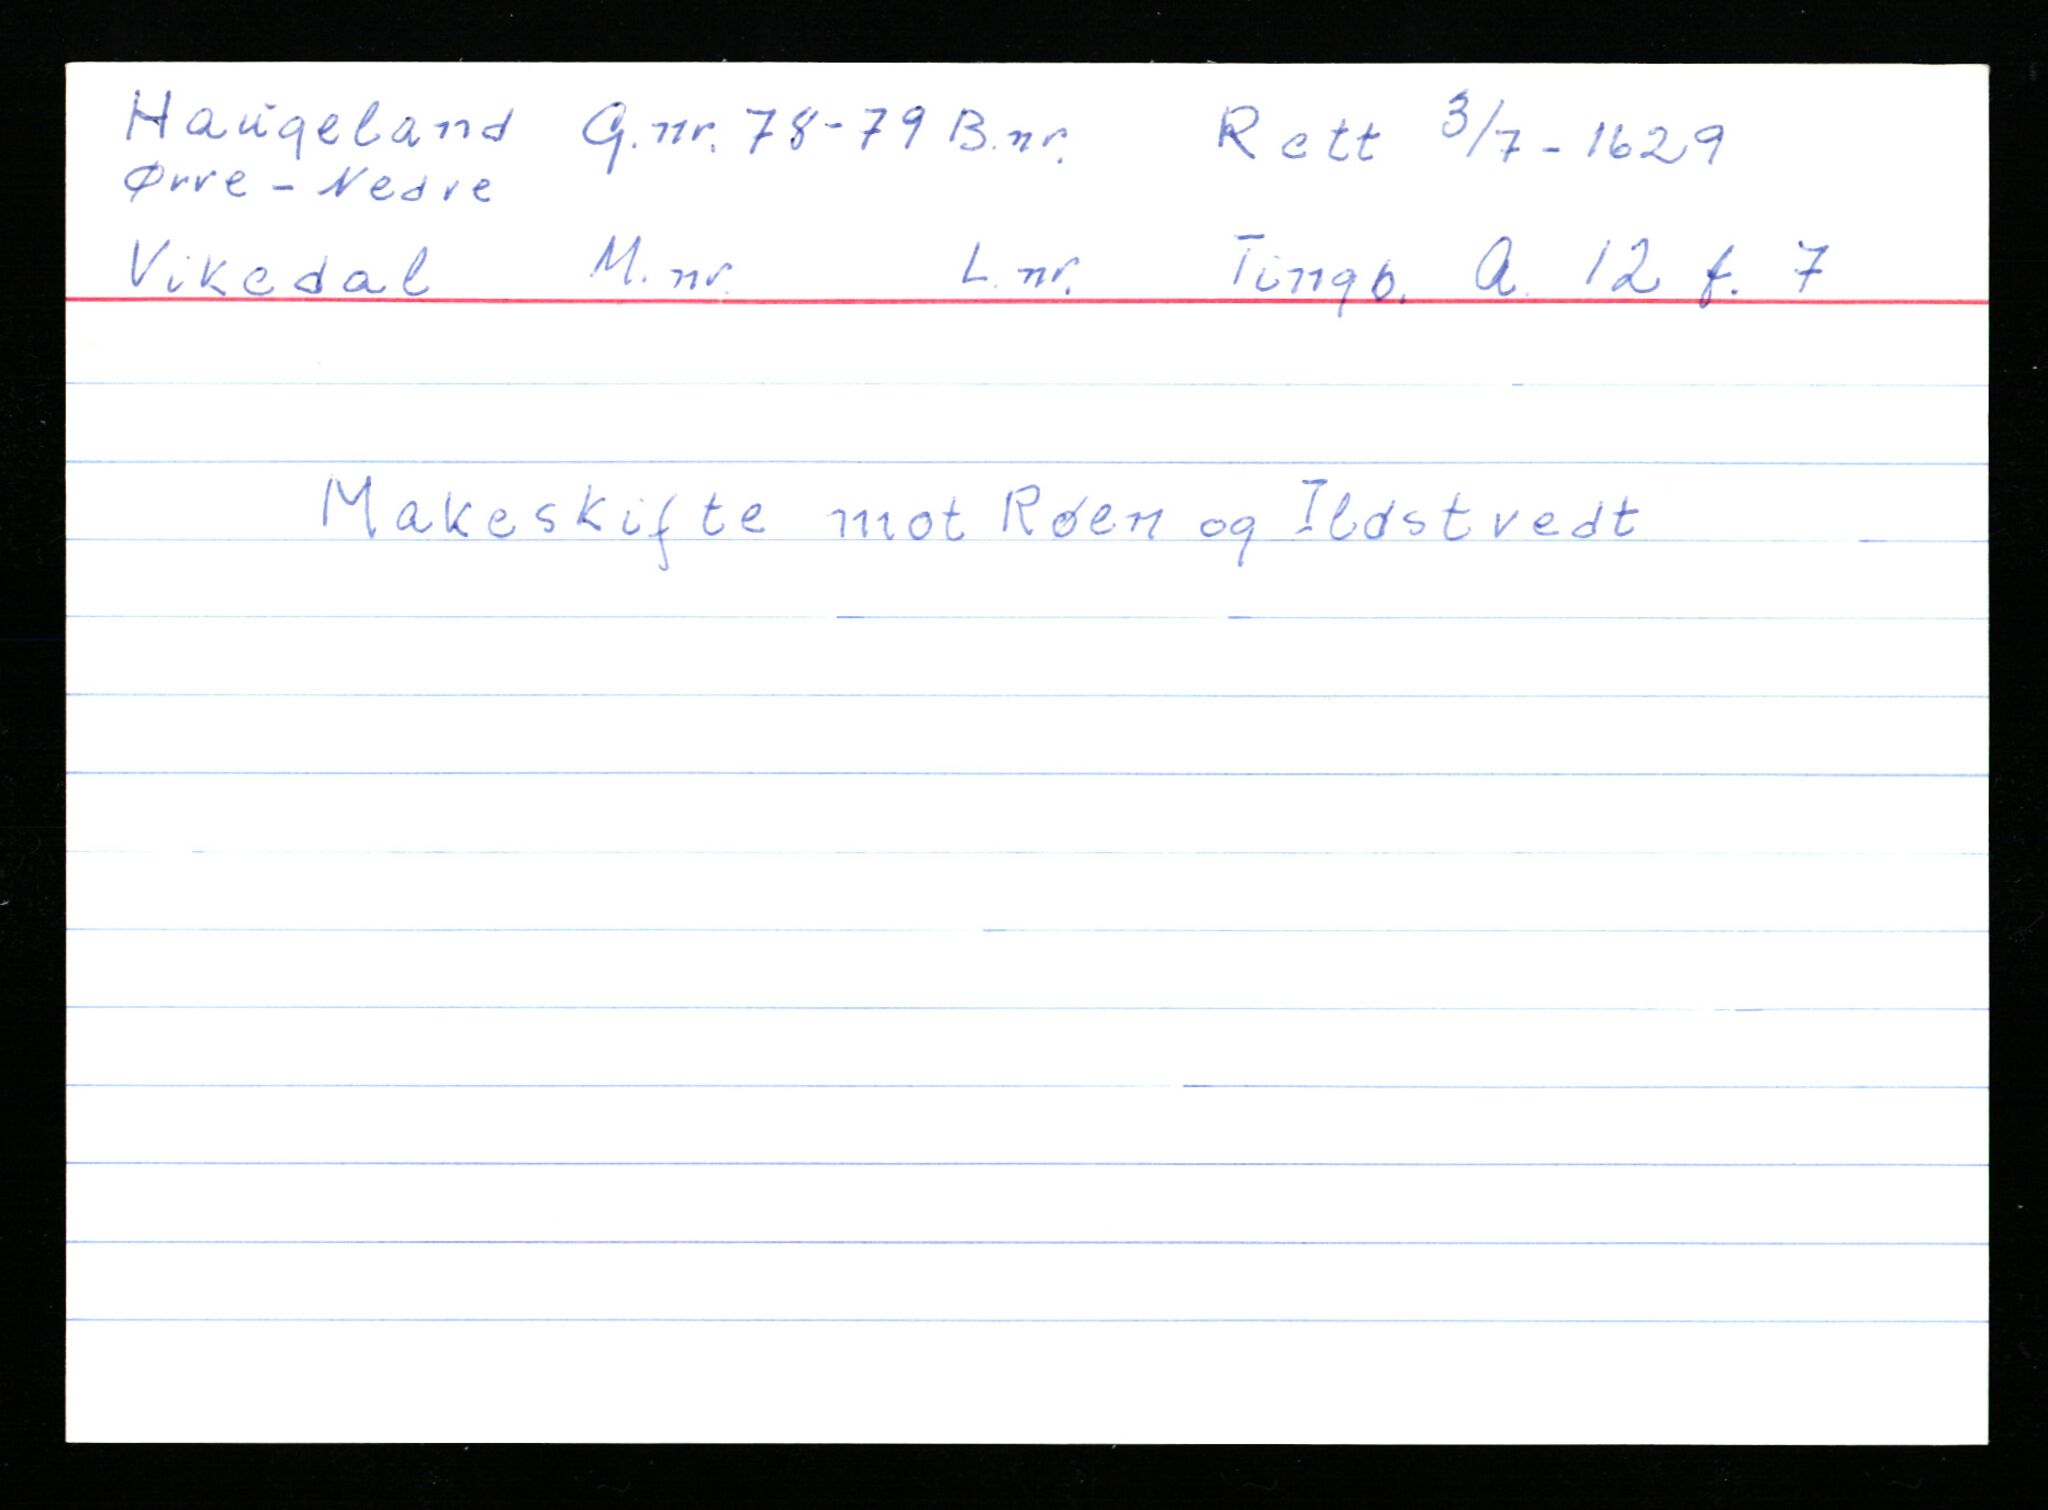 Haugeland G.nr. 78-79 B.nr. Rett 3/7 - 1629
Ørre - Nedre
Vikedal M.nr. L.nr. Tingb. A. 12 f. 7
Makeskifte mot Røen og Ildstvedt